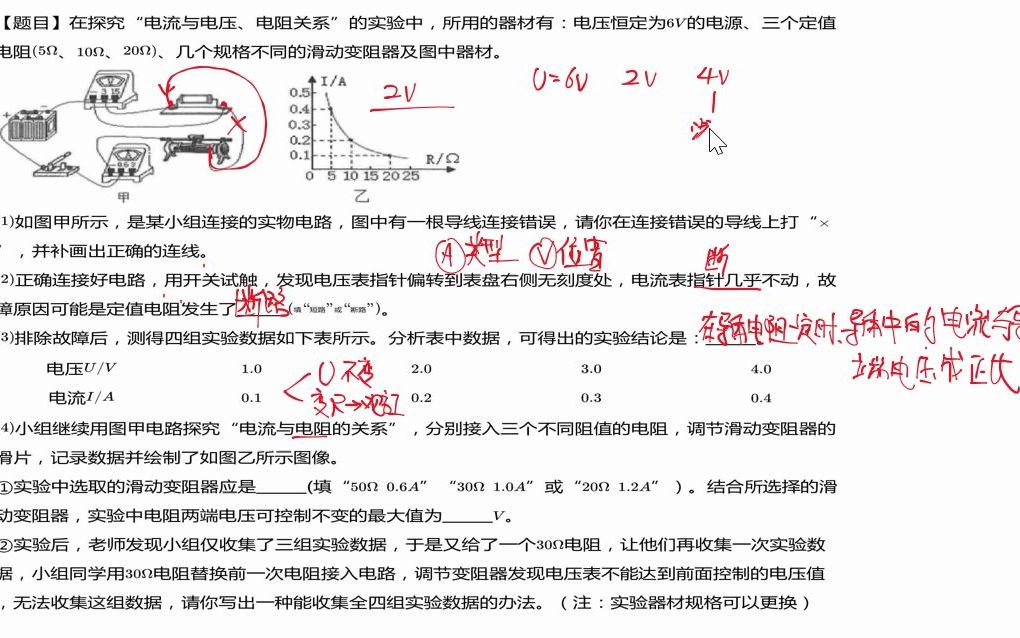 【题目】在探究“电流与电压、电阻关系”的实验中，所用的器材有：电压恒定为6V的电源、三个定值
电阻(5Ω、10Ω、20Ω)、几个规格不同的滑动变阻器及图中器材。
U=6V 2V 4V
I/A
2V
0.5
0.4
0.3
0.2
0.1
R/Ω
0 5 10 15 20 25
甲
乙
1)如图甲所示，是某小组连接的实物电路，图中有一根导线连接错误，请你在连接错误的导线上打“×
”，并补画出正确的连线。
Ⓐ类型 Ⓥ位置
断
2)正确连接好电路，用开关试触，发现电压表指针偏转到表盘右侧无刻度处，电流表指针几乎不动，故
障原因可能是定值电阻发生了断路(填“短路”或“断路”)。
3)排除故障后，测得四组实验数据如下表所示。分析表中数据，可得出的实验结论是：
在导体电阻一定时、导体中的电流与导
两端电压成正比
电压U/V 1.0 2.0 3.0 4.0
电流I/A 0.1 0.2 0.3 0.4
U不变
4)小组继续用图甲电路探究“电流与电阻的关系”，分别接入三个不同阻值的电阻，调节滑动变阻器的
滑片，记录数据并绘制了如图乙所示图像。
①实验中选取的滑动变阻器应是______(填“50Ω 0.6A”“30Ω 1.0A”或“20Ω 1.2A”)。结合所选择的滑
动变阻器，实验中电阻两端电压可控制不变的最大值为______V。
②实验后，老师发现小组仅收集了三组实验数据，于是又给了一个30Ω电阻，让他们再收集一次实验数
据，小组同学用30Ω电阻替换前一次电阻接入电路，调节变阻器发现电压表不能达到前面控制的电压值
，无法收集这组数据，请你写出一种能收集全四组实验数据的办法。（注：实验器材规格可以更换）